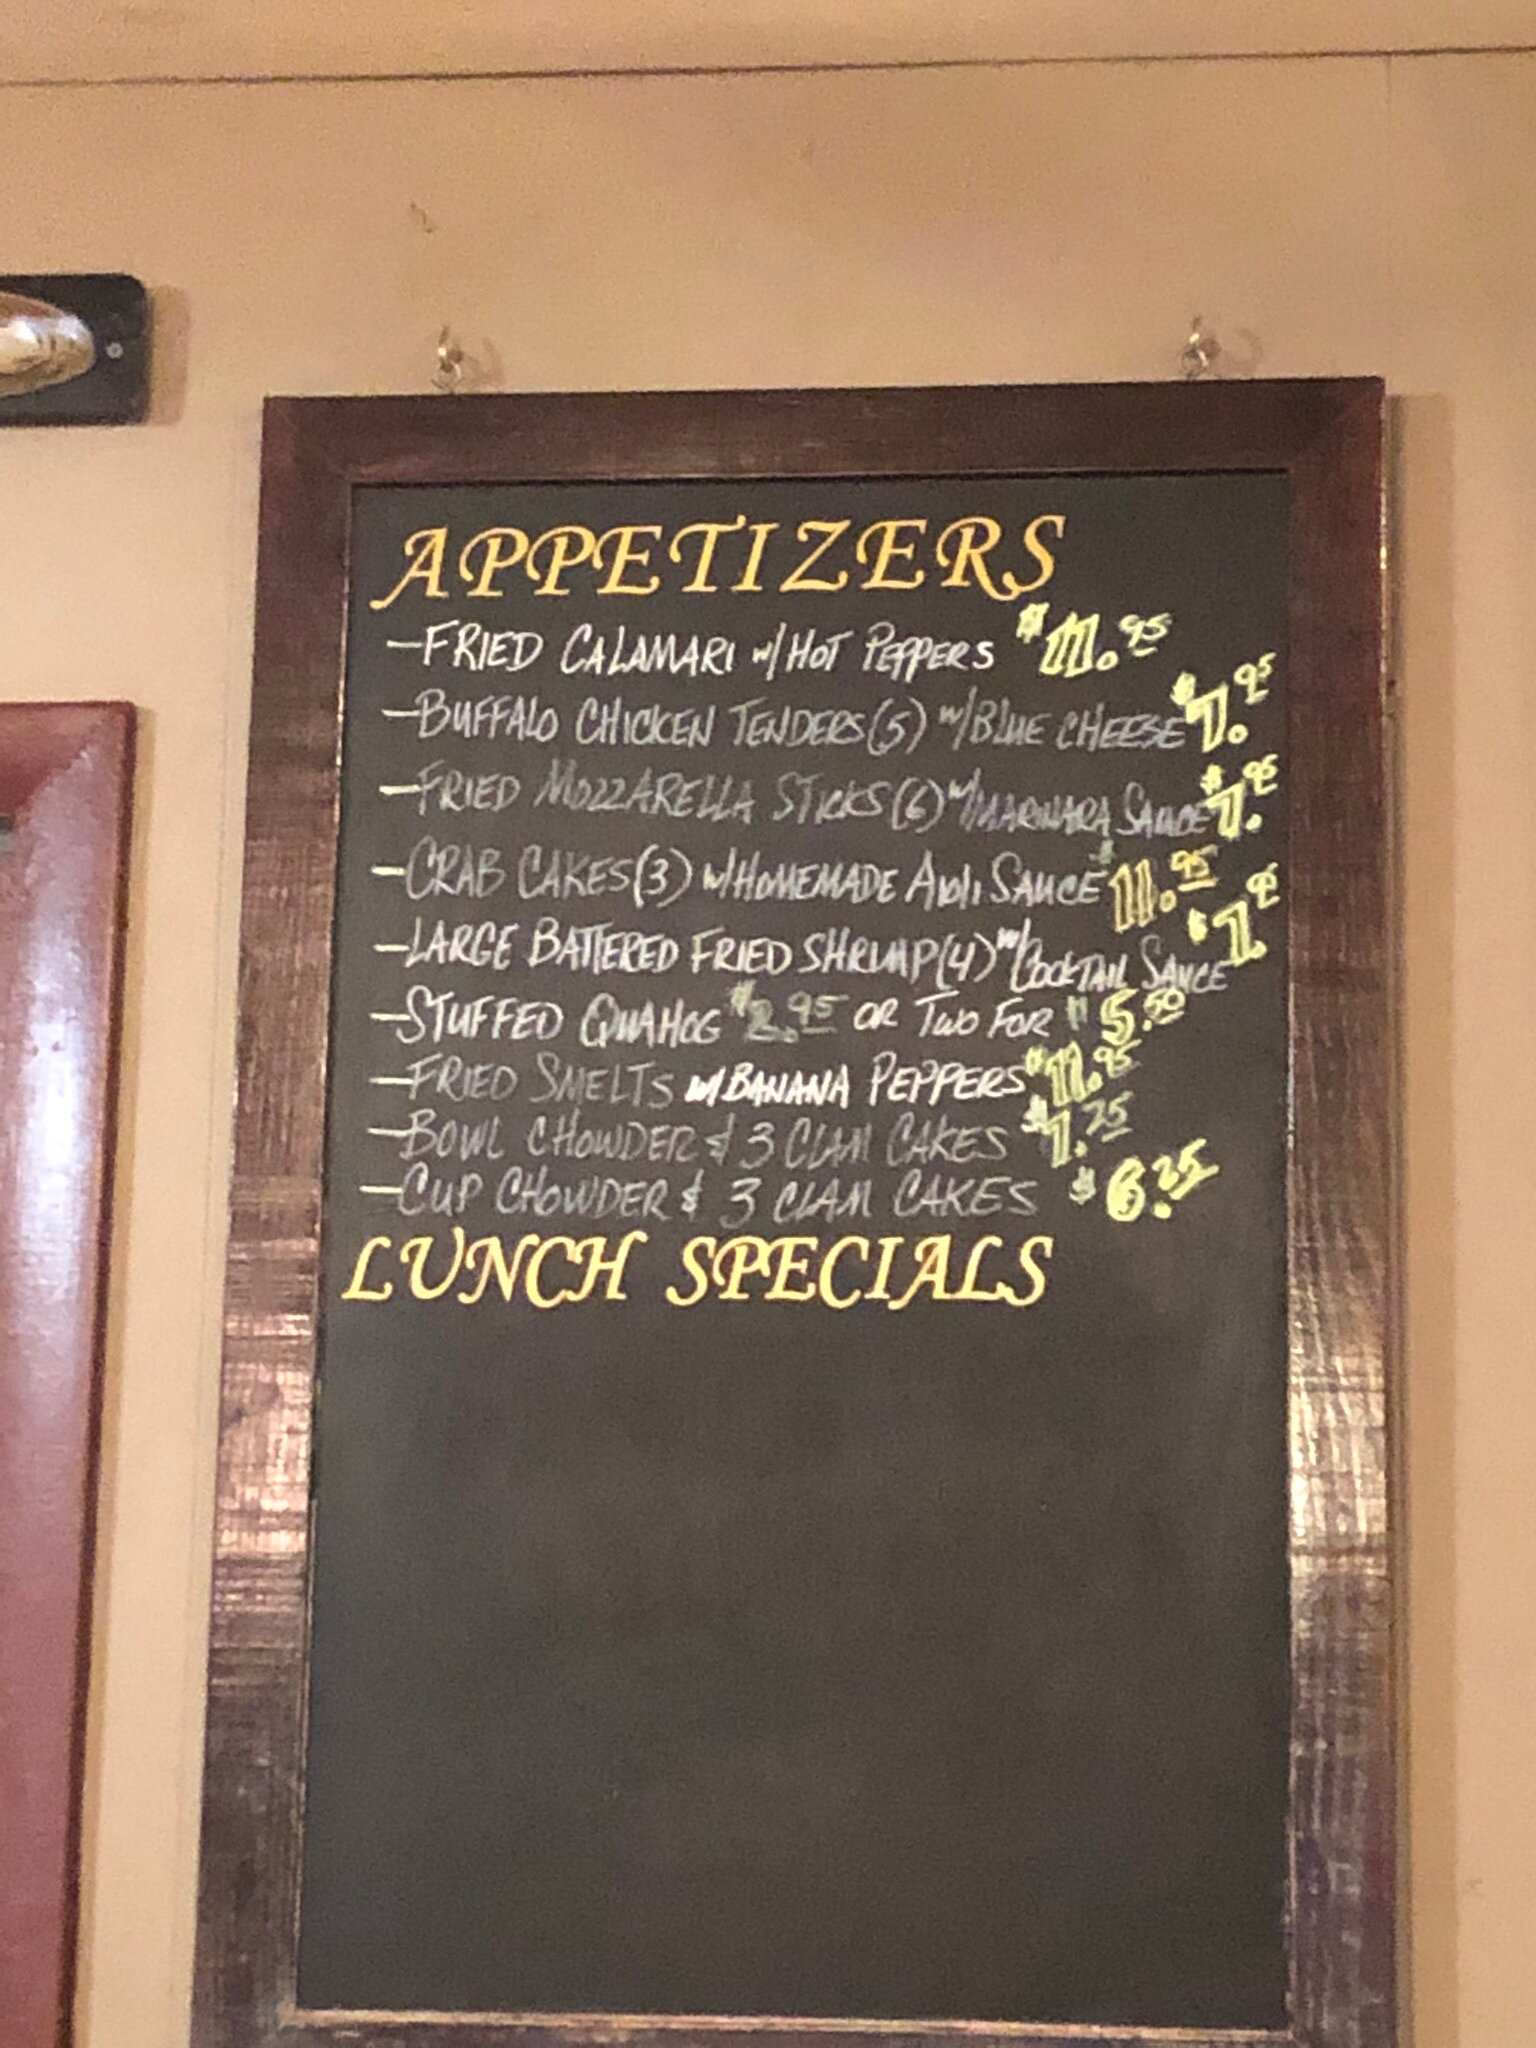 APPETIZERS
-FRIED CALAMARI w/HOT PEPPERS $11.95
-BUFFALO CHICKEN TENDERS(5) w/BLUE CHEESE $7.95
-FRIED MOZZARELLA STICKS(6) w/MARINARA SAUCE $7.95
-CRAB CAKES(3) w/HOMEMADE AIOLI SAUCE $11.95
-LARGE BATTERED FRIED SHRIMP(4) w/COCKTAIL SAUCE
-STUFFED QUAHOG $2.95 OR TWO FOR $5.50
-FRIED SMELTS w/BANANA PEPPERS $11.95
-BOWL CHOWDER & 3 CLAM CAKES $7.25
-CUP CHOWDER & 3 CLAM CAKES $6.25
LUNCH SPECIALS